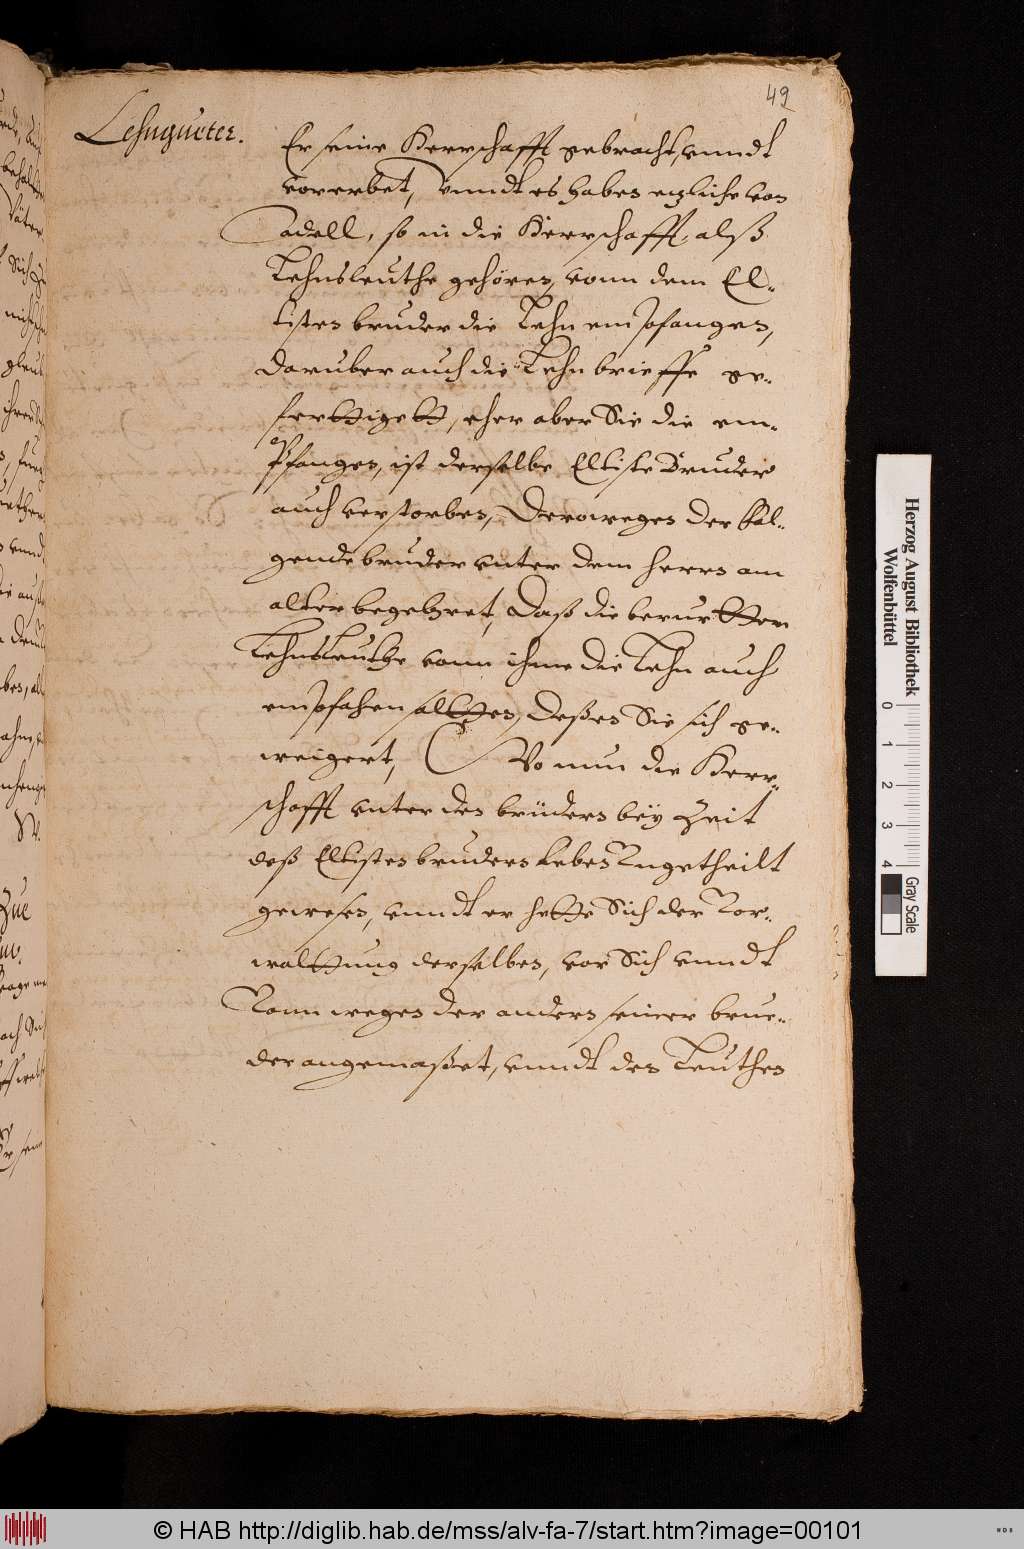 49
Lehngueter.
Er seine Herrschafft gebracht, vnndt
vererbet, Vnndt es haben etzliche von
Adell, so in die Herrschafft, alß
Lehnsleuthe gehören, vonn dem El-
tisten bruder die Lehn empfangen,
daruber auch die Lehn brieffe ge-
ferttigett, eher aber Sie die em-
pfangen, ist derselbe Eltiste Bruder
auch verstorben, Derowegen der fol-
gende bruder vnter dem herrn am
alter begehret, Daß die berurtten
Lehnsleuthe vonn ihme die Lehn auch
empfahen soltten, deßen Sie sich ge-
weigert, Wo nun die Herr-
schafft vnter den brüdern beÿ Zeit
deß Eltisten bruders leben Vngetheilt
gewesen, vnndt er hette Sich der Vor-
walttung derselben, vor Sich vnndt
Vonn wegen der andern seiner brue-
der angemaßet, vnndt den Leuthen
Herzog August Bibliothek
Wolfenbüttel
0 1 2 3 4
Gray Scale
© HAB http://diglib.hab.de/mss/alv-fa-7/start.htm?image=00101